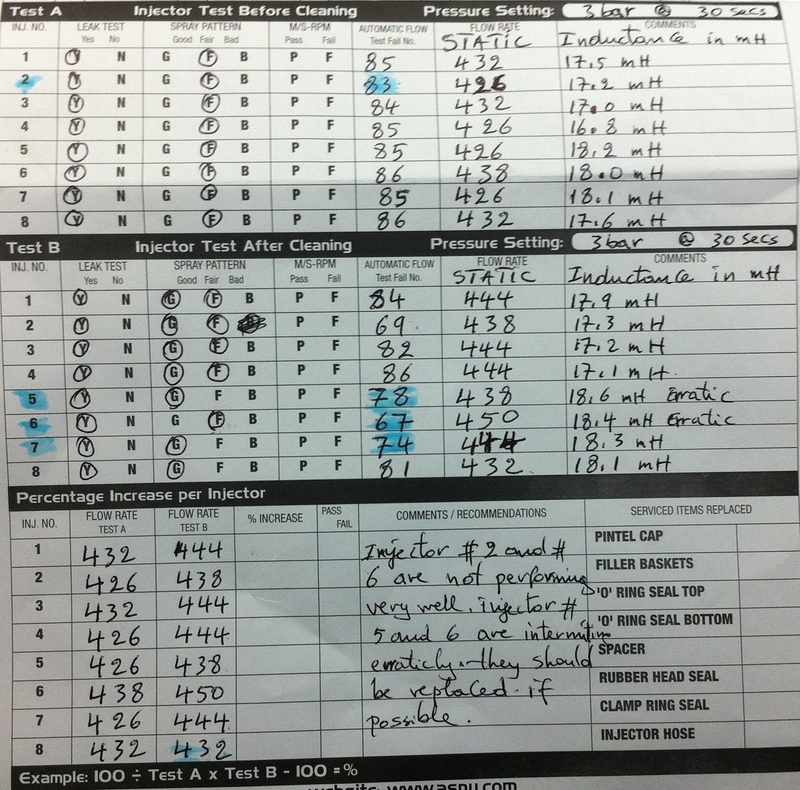 Test A Injector Test Before Cleaning Pressure Setting: 3 bar @ 30 secs
INJ. NO. LEAK TEST SPRAY PATTERN M/S-RPM AUTOMATIC FLOW FLOW RATE COMMENTS
Yes No Good Fair Bad Pass Fail Test Fail No. STATIC Inductance in mH
1 Y N G F B P F 85 432 17.5 mH
2 Y N G F B P F 83 426 17.2 mH
3 Y N G F B P F 84 432 17.0 mH
4 Y N G F B P F 85 426 16.8 mH
5 Y N G F B P F 85 426 18.2 mH
6 Y N G F B P F 86 438 18.0 mH
7 Y N G F B P F 85 426 18.1 mH
8 Y N G F B P F 86 432 17.6 mH
Test B Injector Test After Cleaning Pressure Setting: 3 bar @ 30 secs
INJ. NO. LEAK TEST SPRAY PATTERN M/S-RPM AUTOMATIC FLOW FLOW RATE COMMENTS
Yes No Good Fair Bad Pass Fail Test Fail No. STATIC Inductance in mH
1 Y N G F B P F 84 444 17.9 mH
2 Y N G F P F 69. 438 17.3 mH
3 Y N G F B P F 82 444 17.2 mH
4 Y N G F B P F 86 444 17.1 mH.
5 Y N G F B P F 78 438 18.6 mH Erratic
6 Y N G F B P F 67 450 18.4 mH Erratic
7 Y N G F B P F 74 444 18.3 mH
8 Y N G F B P F 81 432 18.1 mH
Percentage Increase per Injector
INJ. NO. FLOW RATE TEST A FLOW RATE TEST B % INCREASE PASS FAIL COMMENTS / RECOMMENDATIONS SERVICED ITEMS REPLACED
1 432 444 Injector # 2 and # PINTEL CAP
2 426 438 6 are not performing FILLER BASKETS
3 432 444 very well. injector # 'O' RING SEAL TOP
4 426 444 5 and 6 are 'O' RING SEAL BOTTOM
5 426 438 they should SPACER
6 438 450 be replaced if RUBBER HEAD SEAL
7 426 444 possible. CLAMP RING SEAL
8 432 432 INJECTOR HOSE
Example: 100 ÷ Test A x Test B - 100 = %
website: www.asnu.com